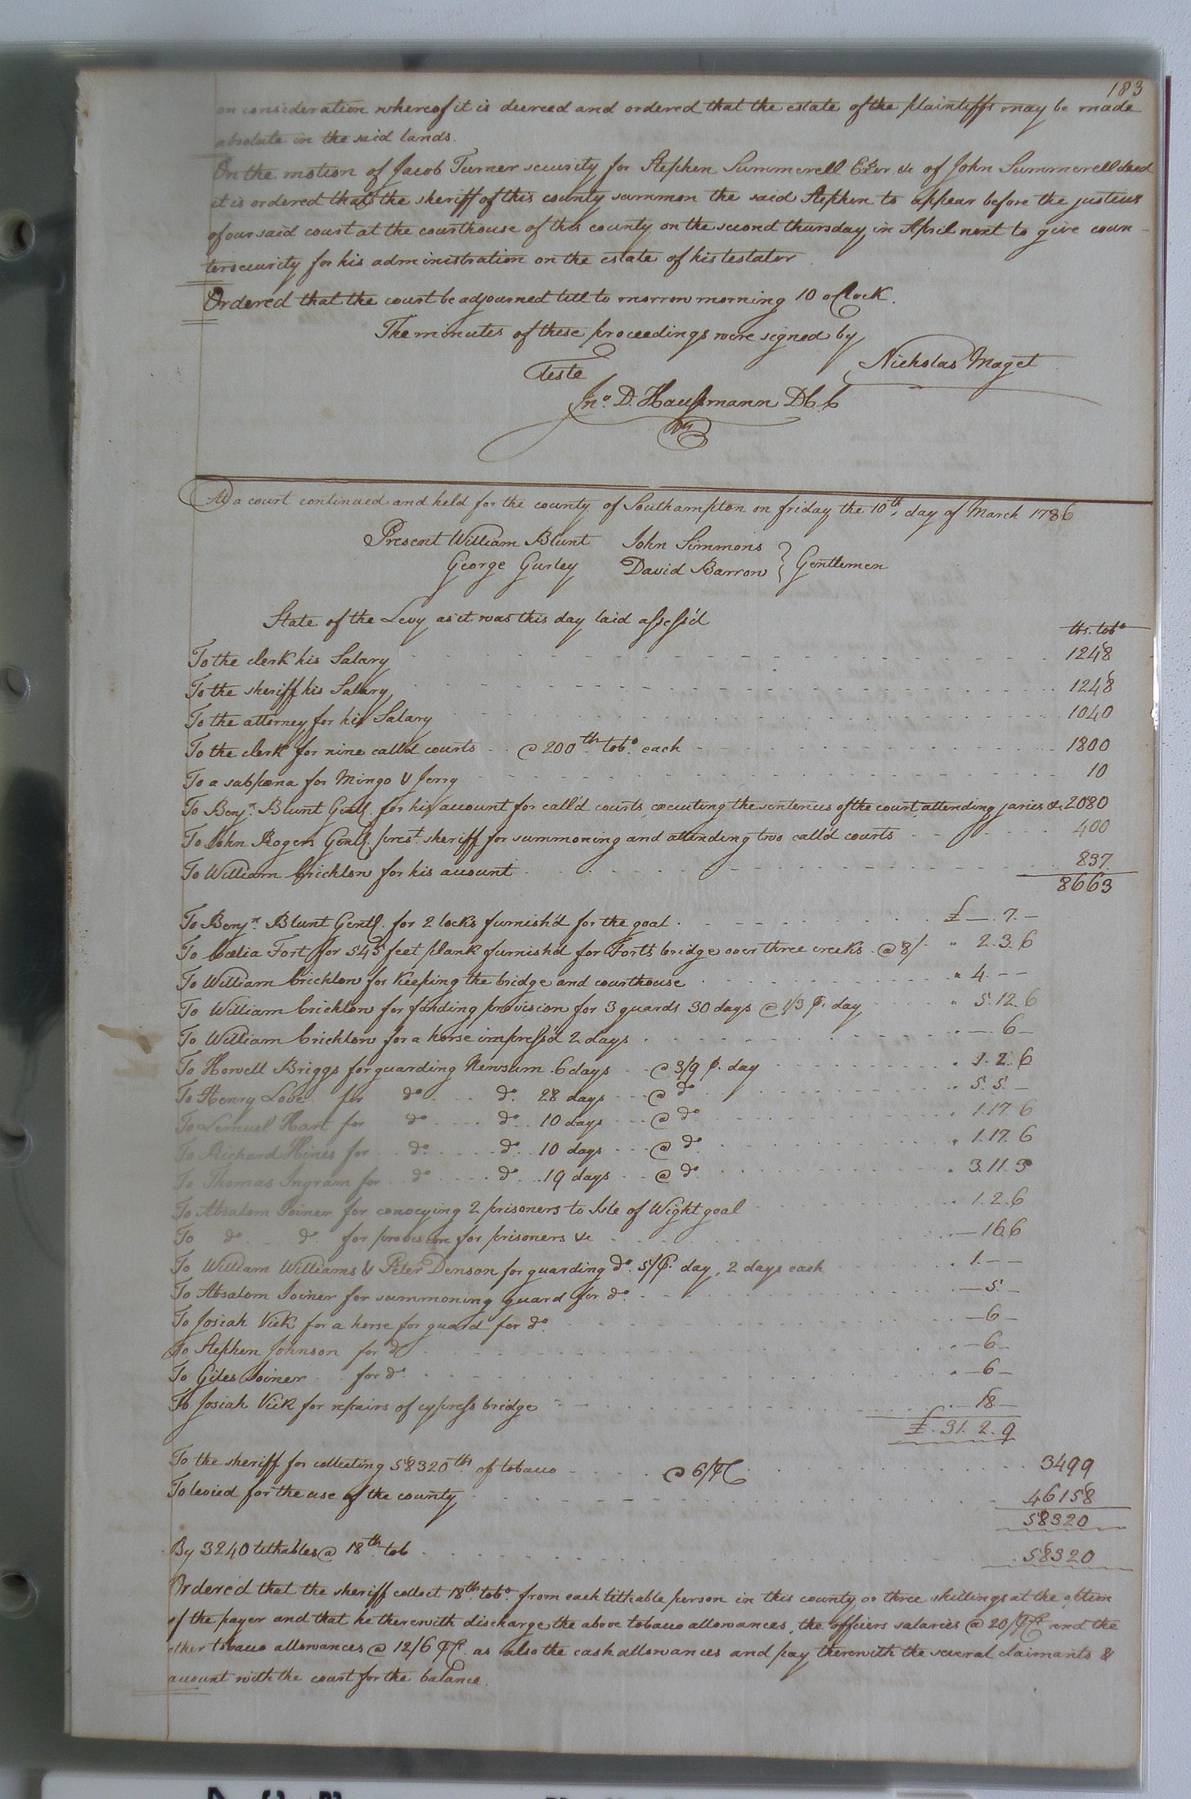 183
on consideration whereof it is decreed and ordered that the estate of the plaintiffs may be made
absolute in the said lands.
On the motion of Jacob Turner security for Stephen Summerell Exor. &c of John Summerell decd
it is ordered that the sheriff of this county summon the said Stephen to appear before the justices
of our said court at the courthouse of this county on the second thursday in April next to give coun-
tersecurity for his administration on the estate of his testator.
Ordered that the court be adjourned till to morrow morning 10 oClock.
The minutes of these proceedings were signed by
Nicholas Maget
Teste
Jno. D. Haussmann D C C
At a court continued and held for the county of Southampton on friday the 10th. day of March 1786
Present William Blunt John Simmons
George Gurley David Barrow } Gentlemen
State of the Levy as it was this day laid assess'd
lbs. tobo
To the clerk his Salary 1248
To the sheriff his Salary 1248
To the attorney for his Salary 1040
To the clerk for nine call'd courts @ 200 lbs. tobo. each 1800
To a subpœna for Mingo & Jerry 10
To Benjn. Blunt Gentl. for his account for call'd courts, executing the sentences of the court, attending juries &c. 2080
To John Rogers Gentl. prest. sheriff for summoning and attending two call'd courts 400
To William Crichlow for his account 837
8663
To Benjn. Blunt Gentl. for 2 locks furnish'd for the goal £ — . 7. —
To Cœlia Fort for 545 feet plank furnish'd for Forts bridge over three creeks @ 8/- " 2.3.6
To William Crichlow for keeping the bridge and courthouse " 4. — —
To William Crichlow for finding provision for 3 guards 30 days @ 1/3 P. day " 5.12.6
To William Crichlow for a horse impress'd 2 days " — 6 —
To Howell Briggs for guarding Newsum 6 days @ 3/9 P. day " 1.2.6
To Henry Love for do. do. 28 days @ do " 5.5. —
To Lemuel Hart for do. do. 10 days @ do " 1.17.6
To Richard Hines for do. do. 10 days @ do " 1.17.6
To Thomas Ingram for do. do. 19 days @ do " 3.11.3
To Absalom Joiner for conveying 2 prisoners to Isle of Wight goal " 1.2.6
To do. do. for provision for prisoners &c — 16.6
To William Williams & Peter Denson for guarding do. 5/P. day, 2 days each " 1. — —
To Absalom Joiner for summoning guard for do. — 5 —
To Josiah Vick for a horse for guard for do. — 6 —
To Stephen Johnson for do " — 6 —
To Giles Joiner for do " — 6 —
To Josiah Vick for repairs of cypress bridge — 18 —
£. 31. 2. 9
To the sheriff for collecting 58320 lbs. of tobacco @ 6/PC 3499
To levied for the use of the county 46158
58320
By 3240 tithables @ 18 lbs. tob 58320
Ordered that the sheriff collect 18 lbs tobo from each tithable person in this county or three shillings at the option
of the payer and that he therewith discharge the above tobacco allowances, the officers salaries @ 20/PC and the
other tobacco allowances @ 12/6 PC. as also the cash allowances and pay therewith the several claimants &
account with the court for the balance.